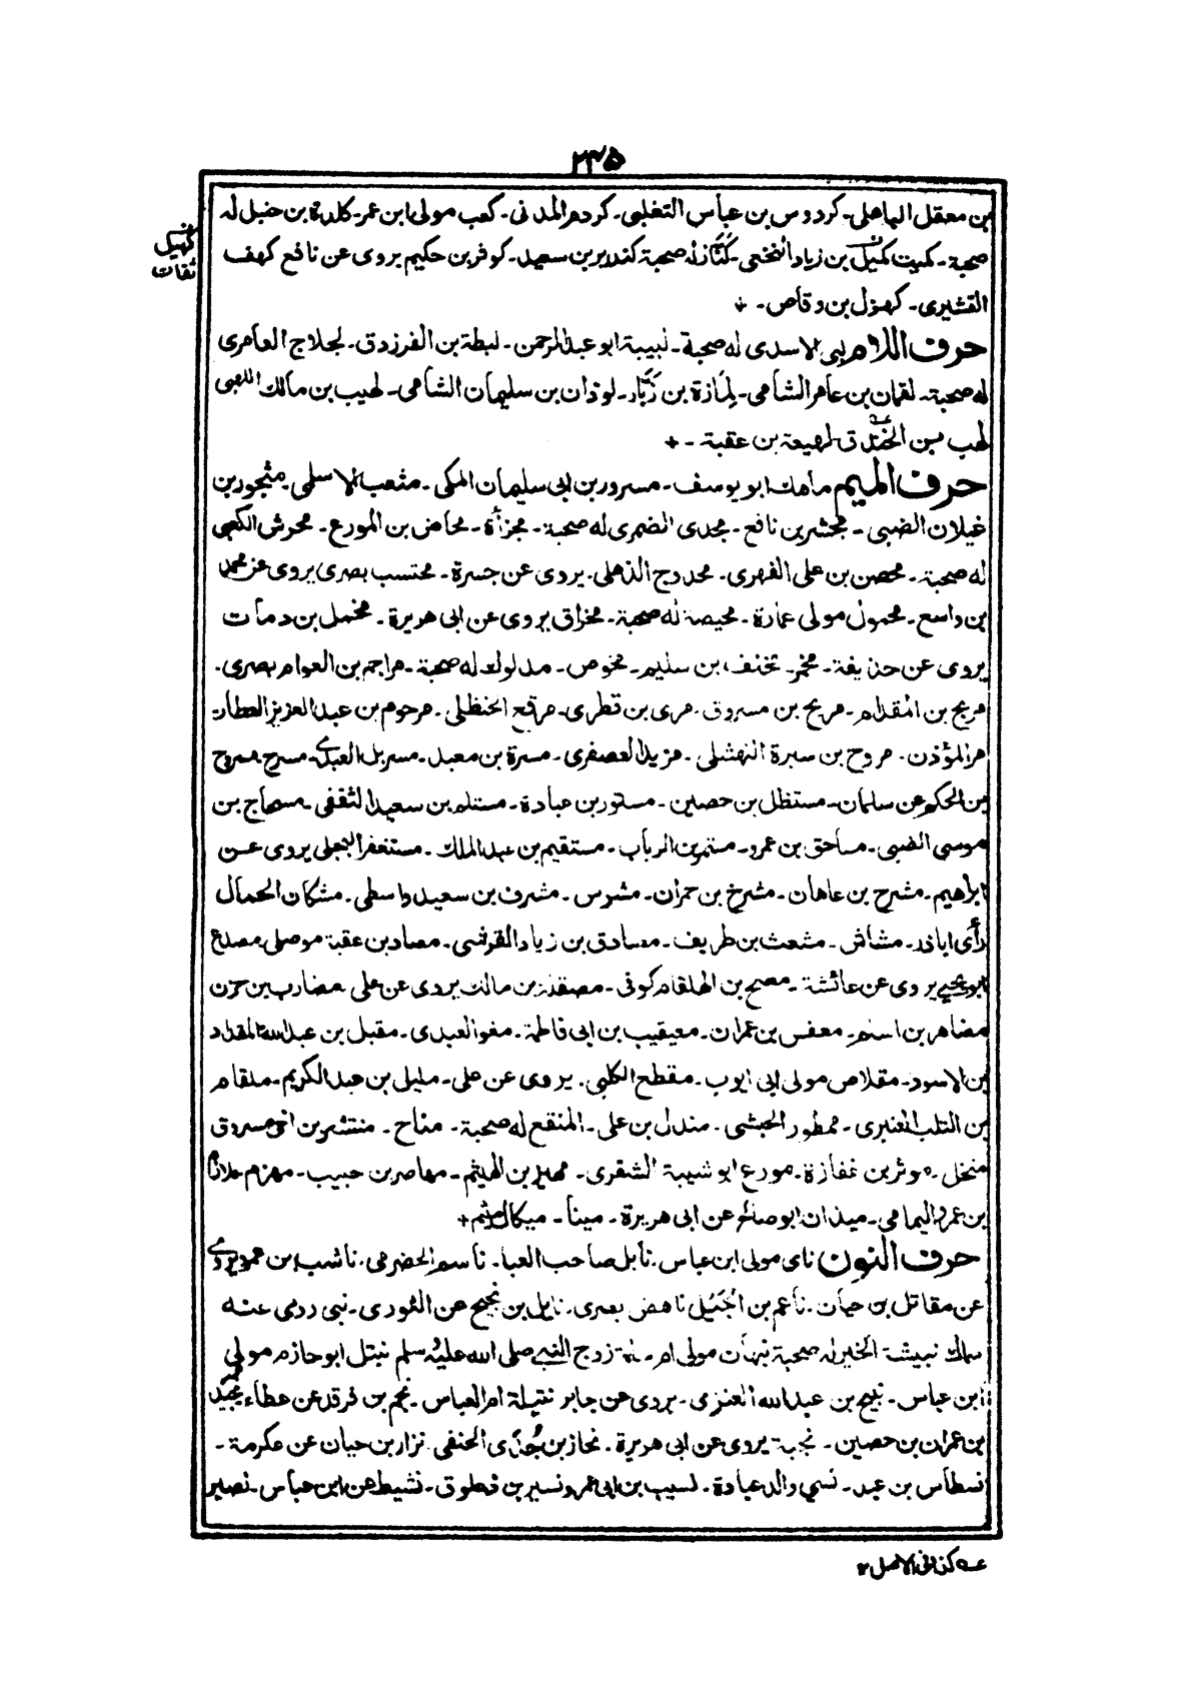 ۲۳۵
بن معقل الباهلی۔ کردوس بن عباس التغلبی۔ کردم المدنی۔ کعب مولی ابن عمر۔ کلدة بن حنبل له
صحبة۔ کمیت کمیل بن زیاد النخعی۔ کنّاز له صحبة کندیر بن سعید۔ کوفر بن حکیم یروی عن نافع کهف
کهیل
ثقات
القشیری۔ کهول بن وقاص۔
حرف اللام لبی الاسدی له صحبة۔ لبیبة ابو عبد الرحمن۔ لبطة بن الفرزدق۔ لجلاج العامری
له صحبة۔ لقمان بن عامر الشامی۔ لِمَازة بن زَبّار۔ لوذان بن سلیمان الشامی۔ لهیب بن مالك اللهبی
لهب بن الخندق لهیعة بن عقبة۔
حرف المیم ماهك ابو یوسف۔ مسرور بن ابی سلیمان المکی۔ مثعب الاسلمی۔ مثجور بن
غیلان الضبی۔ مجشر بن نافع۔ مجدی الضمری له صحبة۔ مجزأة۔ محاضر بن المورع۔ محرش الکعبی
له صحبة۔ محصن بن علی الفهری۔ محدوج الذهلی۔ یروی عن جسرة۔ محتسب بصری یروی عن محمد
بن واسع۔ محمول مولی عمارة۔ محیصة له صحبة۔ مخراق یروی عن ابی هریرة۔ مخمل بن دماث
یروی عن حذیفة۔ مخمر۔ مخنف بن سلیم۔ مخوص۔ مدلوك له صحبة۔ مراجم بن العوام بصری۔
مریح بن المقدام۔ مریح بن مسروق۔ مری بن قطری۔ مرقع الحنظلی۔ مرحوم بن عبد العزیز العطار۔
مر المؤذن۔ مروح بن سبرة النهشلی۔ مزید العصفری۔ مسرة بن معبد۔ مسربل العبدی۔ مسرح مسروح
بن الحکم عن سلمان۔ مستظل بن حصین۔ مستور بن عبادة۔ مستلم بن سعید الثقفی۔ مسحاج بن
موسی الضبی۔ مساحق بن عمرو۔ مستمر بن الریاب۔ مستقیم بن عبد الملك۔ مستغفر البجلی یروی عن
ابراهیم۔ مشرح بن عاهان۔ مشرخ بن حمران۔ مشرس۔ مشرف بن سعید واسطی۔ مشکان الحمال
رأی اباذر۔ مشاش۔ مشعث بن طریف۔ مصادق بن زیاد القرشی۔ مصاد بن عقبة موصلی مصدع
ابو یحیی یروی عن عائشة۔ مصبح بن الهلقام کوفی۔ مصقلة بن مالك یروی عن علی مضارب بن حزن
مضاهر بن اسلم۔ معفس بن عمران۔ معیقیب بن ابی فاطمة۔ مغو العبدی۔ مقبل بن عبد الله المقداد
بن الاسود۔ مقلاص مولی ابی ایوب۔ مقطع الکلبی۔ یروی عن علی۔ ملیل بن عبد الکریم۔ ملقام
بن التلب العنبری۔ ممطور الحبشی۔ مندل بن علی۔ المنقع له صحبة۔ مناح۔ منتشر بن اخی مسروق
منخل۔ موثر بن غفازة۔ مورع ابو شیبة الشقری۔ مهیر بن الهیثم۔ مهاصر بن حبیب۔ مهزم ملازم
بن عمرو الیمامی۔ میذان ابو صالح عن ابی هریرة۔ مینا۔ میکال
حرف النون نای مولی ابن عباس۔ نابل صاحب العبا۔ ناسم الحضرمی۔ ناشب بن عمرو یروی
عن مقاتل بن حیان۔ ناعم بن اُجَیل ناهض بصری۔ نایل بن نجیح عن الثوری۔ نبی روی عنه
سماك نبیشة الخیر له صحبة نبهان مولی ام سلمة زوج النبی صلی الله علیه وسلم نبتل ابو حازم مولی
ابن عباس۔ نبیح بن عبد الله العنزی۔ یروی عن جابر نتیلة ام العباس۔ نجم بن فرقد عن عطاء نجید
بن عمران بن حصین۔ نجبة یروی عن ابی هریرة۔ نحاز بن جُدَی الحنفی نزار بن حیان عن عکرمة۔
نسطاس بن عبد۔ نسی والد عبادة۔ نسیب بن ابی عمرو نسیر بن ذعلوق۔ نشیط عن ابن عباس۔ نصیر
عه کذا فی الاصل ۲